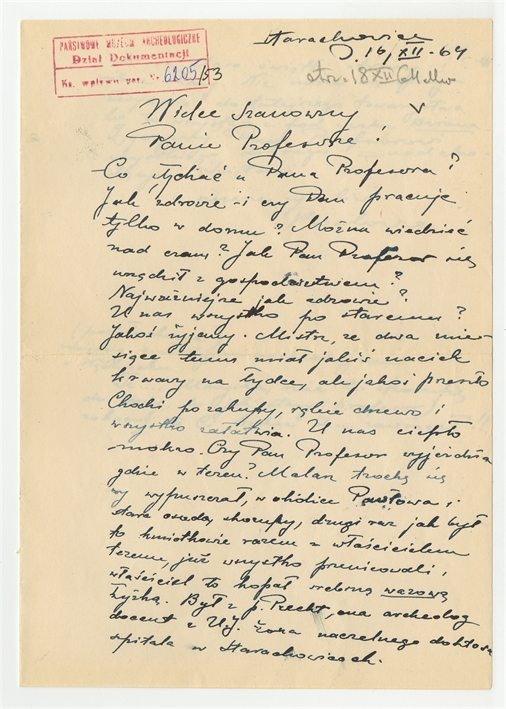 PAŃSTWOWE MUZEUM ARCHEOLOGICZNE
Dział Dokumentacji
Ks. wpływu Nr 6205/53
Starachowice
D. 16/XII-64
otrz. 18 XII 64
Wielce Szanowny
Panie Profesorze!
Co słychać u Pana Profesora?
Jak zdrowie i czy Pan pracuje
tylko w domu? Można wiedzieć
nad czem? Jak Pan Profesor się
urządził z gospodarstwem?
Najważniejsze jak zdrowie?
U nas wszystko po staremu?
Jakoś żyjemy. Mistrz, ze dwa mie-
siące temu miał jakiś naciek
krwawy na łydce, ale jakoś przeszło
Chodzi po zakupy, rąbie drzewo i
wszystko załatwia. U nas ciepło
mokro. Czy Pan Profesor wyjeżdża
gdzie w teren? Malarz trochę się
wypuszczał, w okolice Pawłowa,
stara osada, skorupy, drugi raz jak był
to kmiotkowie razem z właścicielem
terenu, już wszystko przenicowali,
właściciel to kopał srebrną wazową
łyżką. Był z p. Precht, ona archeolog
docent z U.J. żona naczelnego doktora
szpitala w Starachowicach.